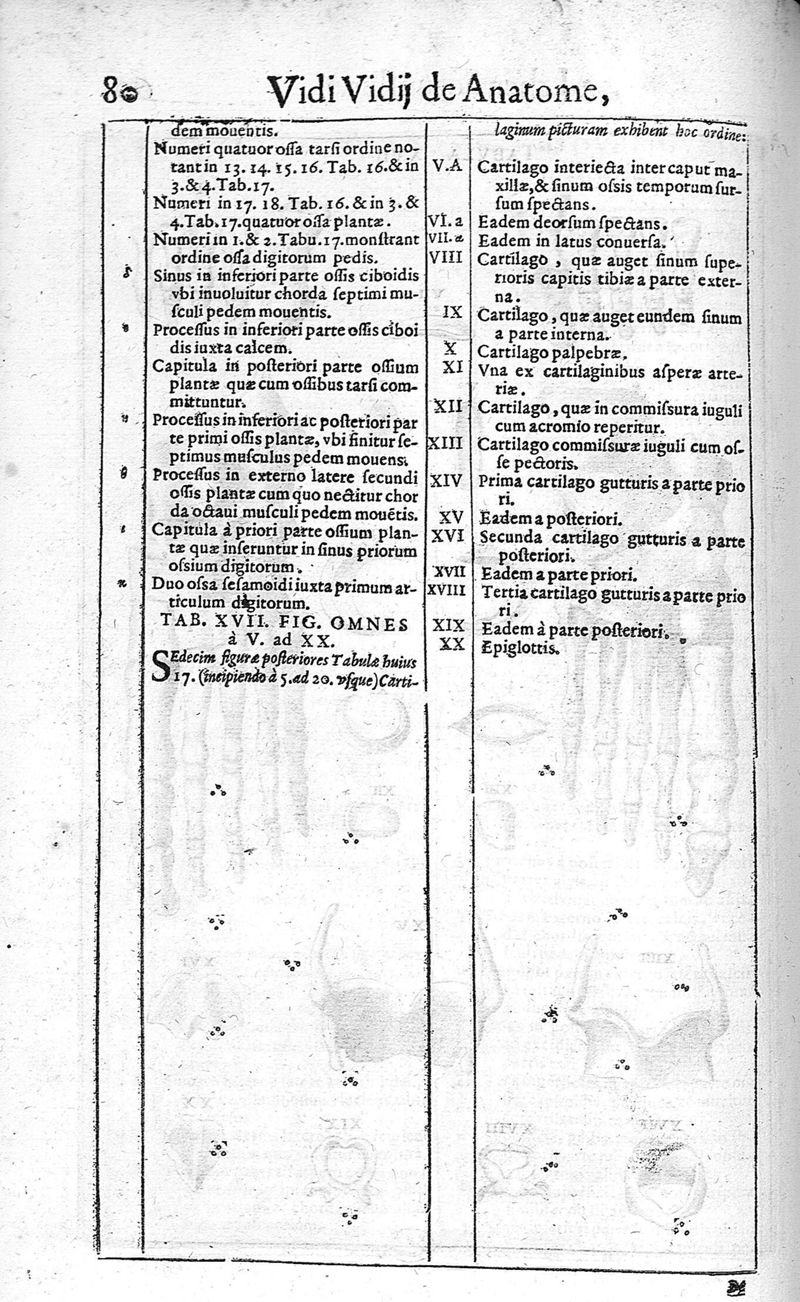 80 Vidi Vidij de Anatome,
dem mouentis.
Numeri quatuor ossa tarsi ordine no-
tant in 13. 14. 15. 16. Tab. 16. & in
3. & 4. Tab. 17.
Numeri in 17. 18. Tab. 16. & in 3. &
4. Tab. 17. quatuor ossa plantæ.
Numeri in 1. & 2. Tabu. 17. monstrant
ordine ossa digitorum pedis.
Sinus in inferiori parte ossis ciboidis
vbi inuoluitur chorda septimi mu-
sculi pedem mouentis.
Processus in inferiori parte ossis ciboi
dis iuxta calcem.
Capitula in posteriori parte ossium
plantæ quæ cum ossibus tarsi com-
mittuntur.
Processus in inferiori ac posteriori par
te primi ossis plantæ, vbi finitur se-
ptimus musculus pedem mouens.
θ Processus in externo latere secundi
ossis plantæ cum quo nectitur chor
da octaui musculi pedem mouētis.
ι Capitula à priori parte ossium plan-
tæ quæ inseruntur in sinus priorum
ossium digitorum.
Duo ossa sesamoidi iuxta primum ar-
ticulum digitorum.
TAB. XVII. FIG. OMNES
à V. ad XX.
SEdecim figuræ posteriores Tabulæ huius
17. (incipiendo à 5. ad 20. vsque) Carti-
laginum picturam exhibent hoc ordine:
V.A Cartilago interiecta inter caput ma-
xillæ, & sinum ossis temporum sur-
sum spectans.
VI. a Eadem deorsum spectans.
VII. Eadem in latus conuersa.
VIII Cartilago, quæ auget sinum supe-
rioris capitis tibiæ a parte exter-
na.
IX Cartilago, quæ auget eundem sinum
a parte interna.
X Cartilago palpebræ.
XI Vna ex cartilaginibus asperæ arte-
riæ.
XII Cartilago, quæ in commissura iuguli
cum acromio reperitur.
XIII Cartilago commissuræ iuguli cum os-
se pectoris.
XIV Prima cartilago gutturis a parte prio
ri.
XV Eadem a posteriori.
XVI Secunda cartilago gutturis a parte
posteriori.
XVII Eadem a parte priori.
XVIII Tertia cartilago gutturis a parte prio
ri.
XIX Eadem à parte posteriori.
XX Epiglottis.